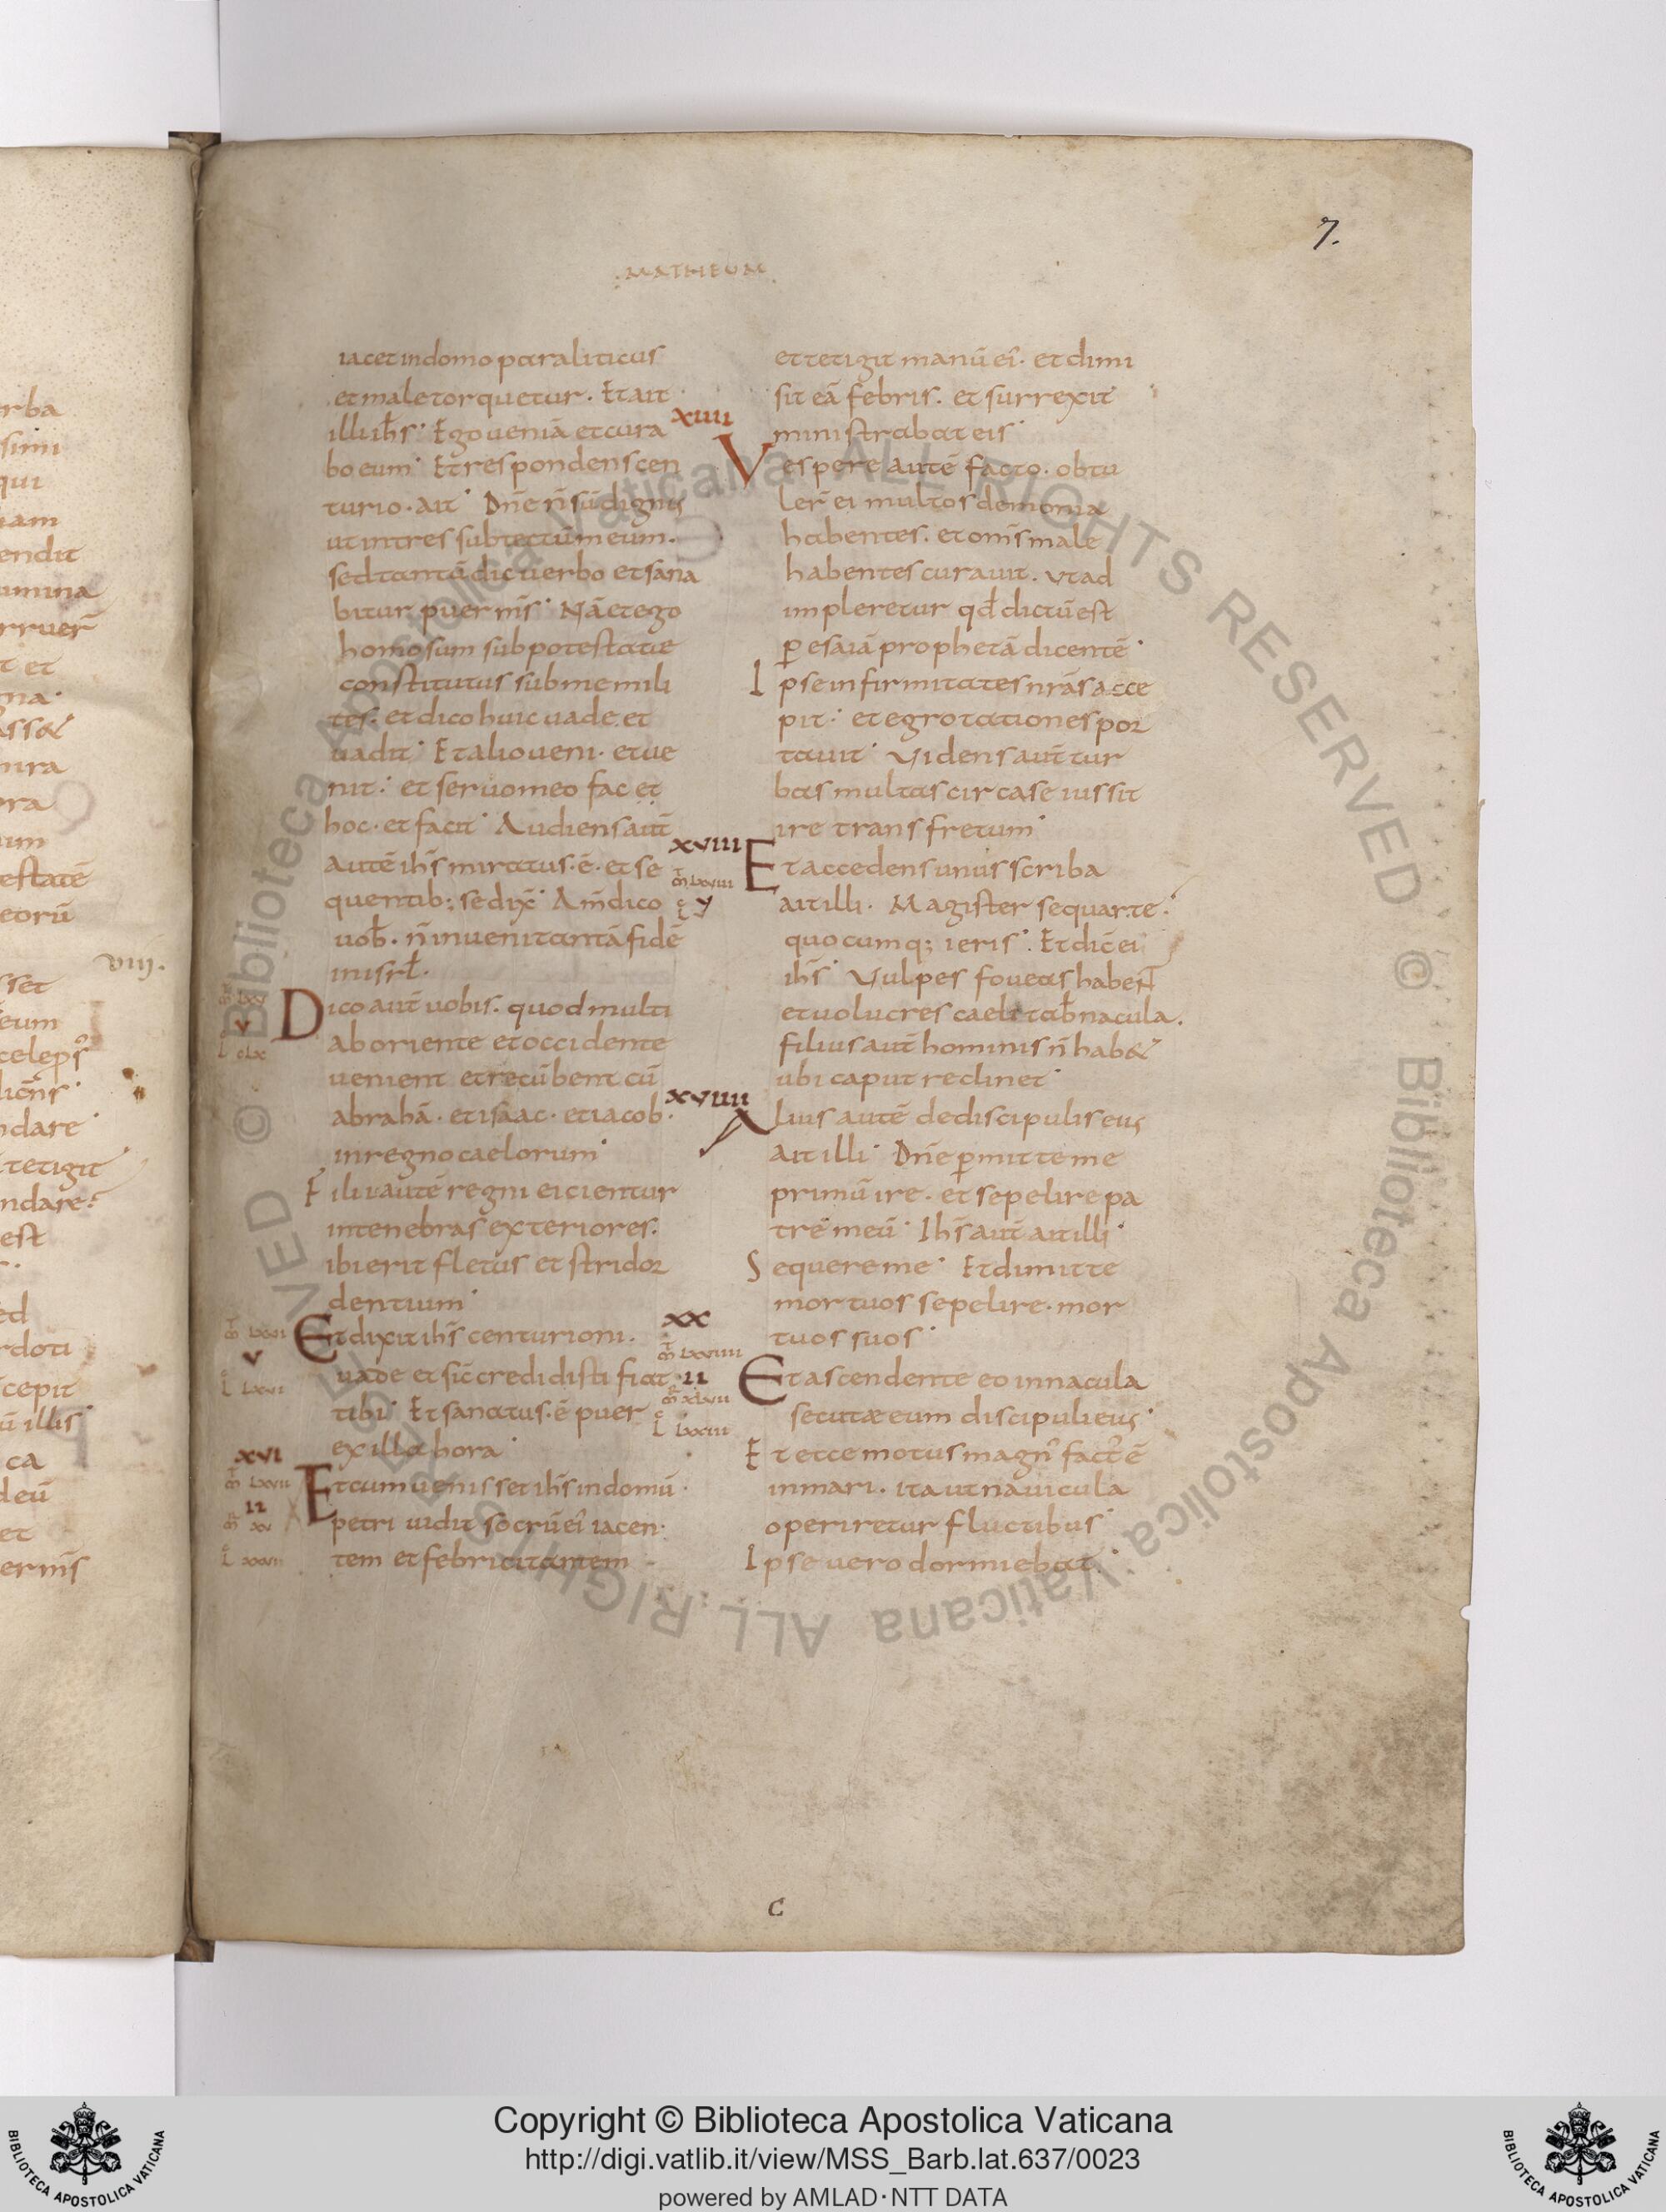 7.
MATHEUM
iacet in domo paraliticus
et male torquetur. Et ait
illi ih̄s. Egoueniā et cura
bo eum. Et respondens cen
turio. ait. Dn̄e n̄ sū dignus
ut intres sub tectūm eum.
sed tantū dic uerbo et sana
bitur puer m̄s. Nā et ego
homo sum sub potestate
constitutus sub me mili
tes. et dico huic uade. et
uadit. Et alio ueni. et ue
nit. et seruo meo fac et
hoc. et facit. Audiens aut̄
autē ih̄s miratus. ē. et se
quentib; se dix̄. Am̄ dico
uob̄. n̄ inueni tantā fidē
in isrl̄.
Dico aut̄ uobis. quod multi
ab oriente et occidente
uenient et recūbent cū
abrahā. et isaac. et iacob.
in regno caelorum.
Filii autē regni eicientur
in tenebras exteriores.
ibi erit fletus et stridor
dentium.
Et dixit ih̄s centurioni.
uade et sic̄ credidisti fiat
tibi. Et sanatus. ē puer
ex illa hora.
XVI
Et cum uenisset ih̄s in domū.
petri uidit socrū ei᾽ iacen
tem et febricitantem
et tetigit manū ei᾽. et dimi
sit eā febris. et surrexit
ministrabat eis.
XUII
Vespere autē facto. obtu
ler̄ ei multos demonia
habentes. et om̄s male
habentes curauit. Vt ad
impleretur qd̄ dictū est
ꝑ esaiā prophetā dicentē.
Ipse infirmitates nrā̄s acce
pit. et egrotationes por
tauit. Videns aut̄ tur
bas multas circa se iussit
ire trans fretum.
XVIII
Et accedens unus scriba
ait illi. Magister sequar te.
quocumq; ieris. Et dic̄ ei
ih̄s. Vulpes foueas habent
et uolucres caeli tab̄nacula.
filius aut̄ hominis n̄ hab&
ubi caput reclinet.
XVIIII
Alius autē de discipulis eius
ait illi. Dn̄e ꝑmitte me
primū ire. et sepelire pa
trē meū. Ih̄s aut̄ ait illi.
Sequere me. Et dimitte
mortuos sepelire. mor
tuos suos.
XX
Et ascendente eo in nacula
secutæ eum discipuli eius.
Et ecce motus magn᾽ fact᾽ ē
in mari. ita ut nauicula
operiretur fluctibus.
Ipse uero dormiebat.
C
rba
simi
qui
iam
endit
umina
rruer̄
t et
gna.
ass&
um
estatē
eorū
VIII.
sset
eum
ndare
tetigit
ndare.
est
ed
rdoti
cepit
ū illis
ca
deū
et
ermīs
© Biblioteca Apostolica Vaticana ALL RIGHTS RESERVED © Biblioteca Apostolica Vaticana ALL RIGHTS RESERVED
BIBLIOTECA APOSTOLICA VATICANA
Copyright © Biblioteca Apostolica Vaticana
http://digi.vatlib.it/view/MSS_Barb.lat.637/0023
powered by AMLAD·NTT DATA
BIBLIOTECA APOSTOLICA VATICANA